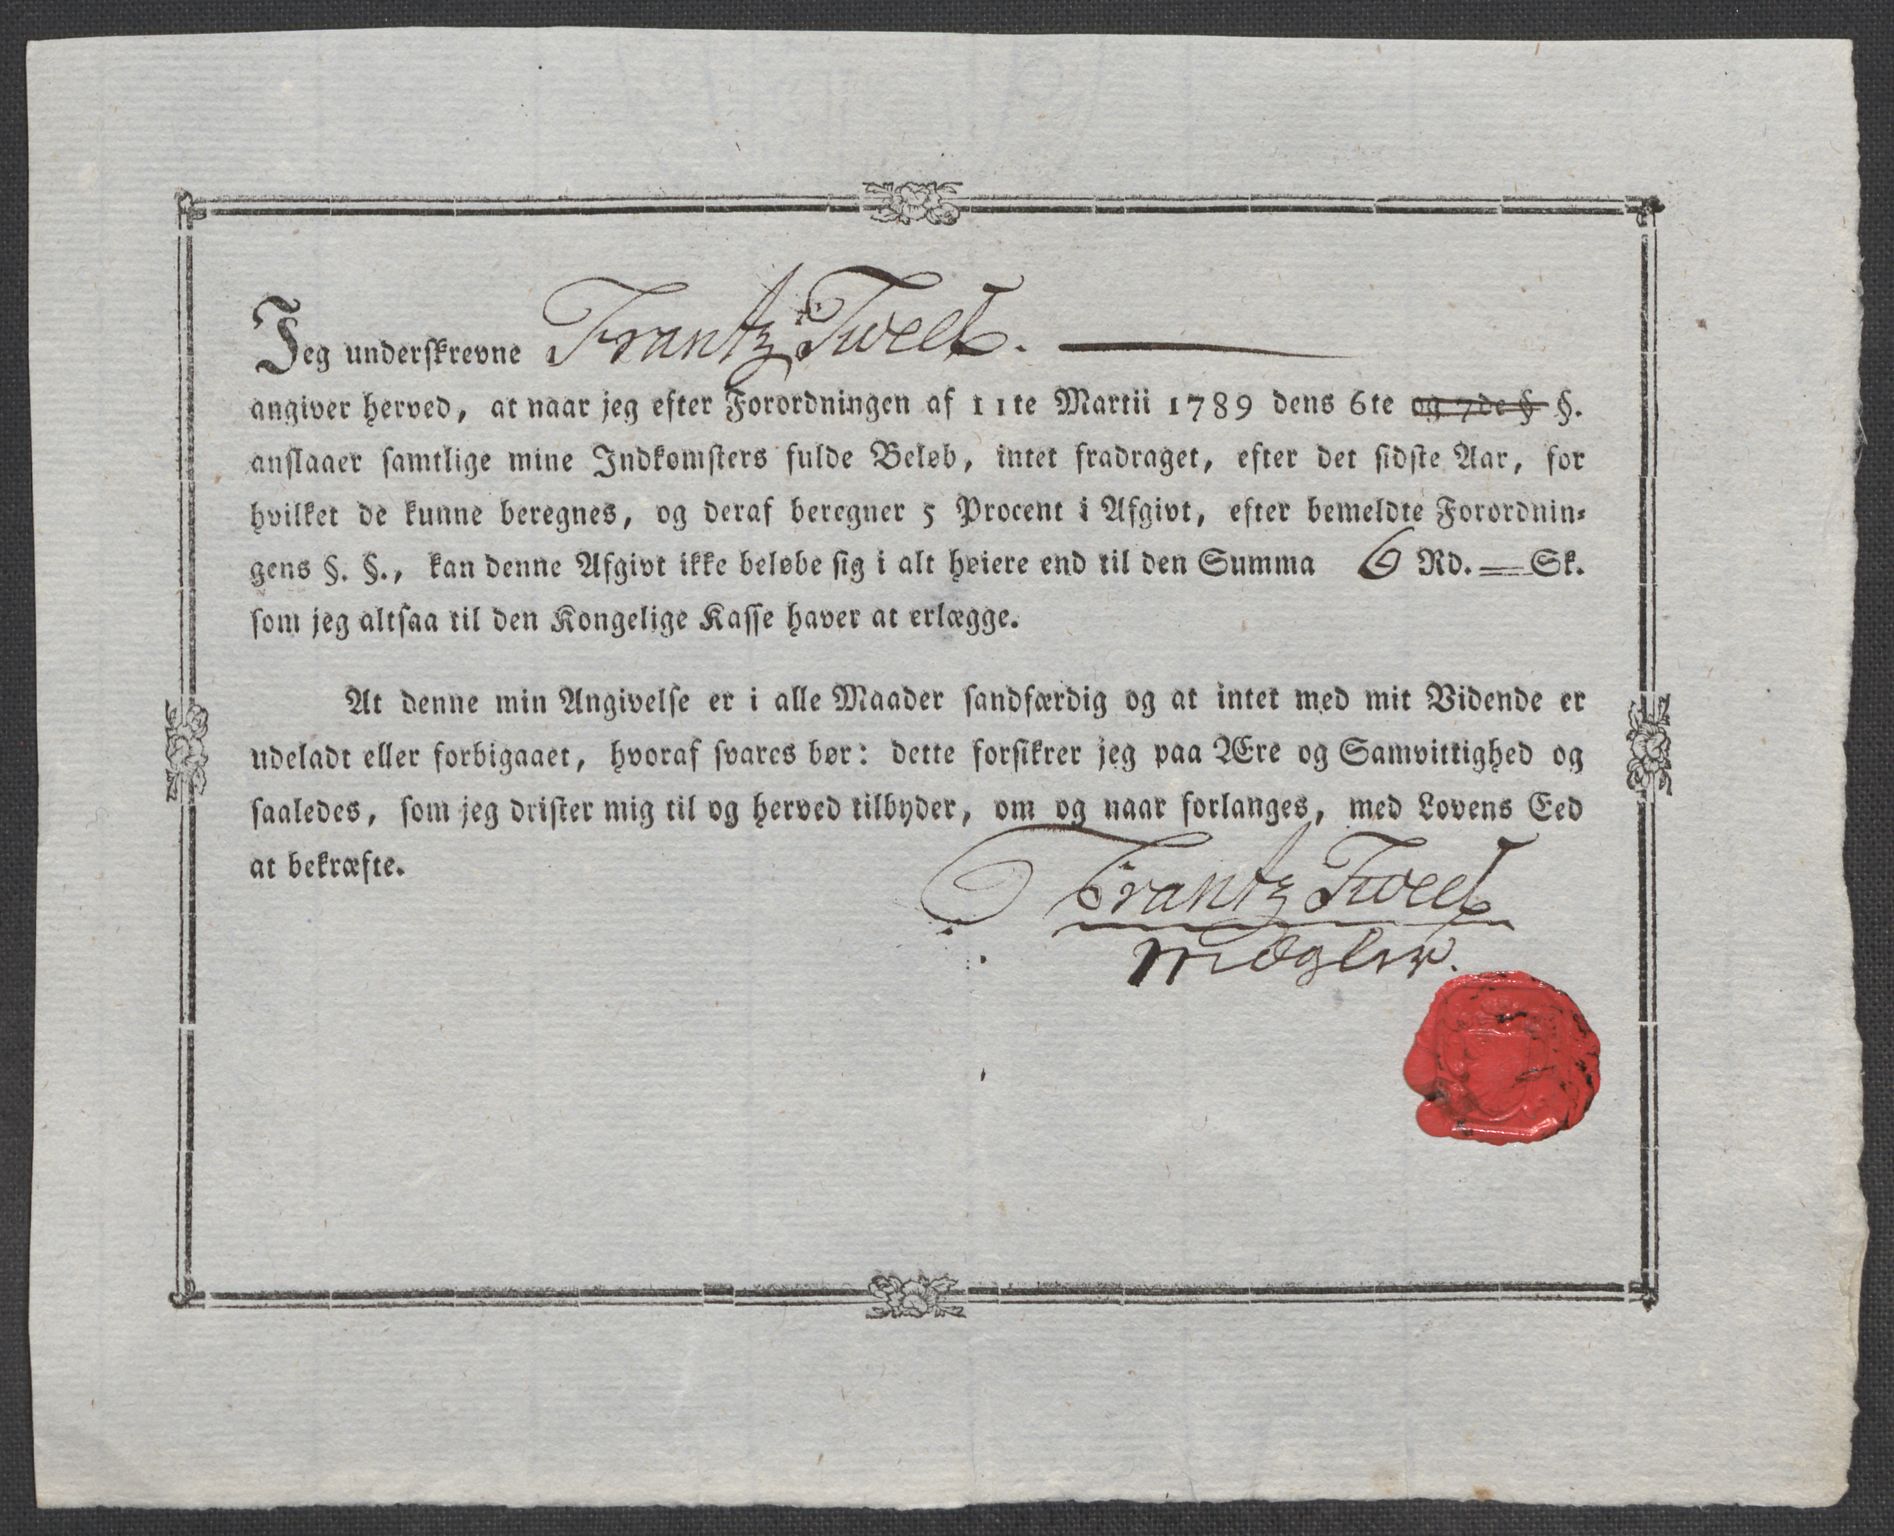 Jeg underskrevne Frantz Tweet.
angiver herved, at naar jeg efter Forordningen af 11te Martii 1789 dens 6te og 7de § §.
anslaaer samtlige mine Indkomsters fulde Beløb, intet fradraget, efter det sidste Aar, for
hvilket de kunne beregnes, og deraf beregner 5 Procent i Afgivt, efter bemeldte Forordnin⸗
gens §. §., kan denne Afgivt ikke beløbe sig i alt høiere end til den Summa 6 Rd. — Sk.
som jeg altsaa til den Kongelige Kasse haver at erlægge.
At denne min Angivelse er i alle Maader sandfærdig og at intet med mit Vidende er
udeladt eller forbigaaet, hvoraf svares bør: dette forsikrer jeg paa Ære og Samvittighed og
saaledes, som jeg drister mig til og herved tilbyder, om og naar forlanges, med Lovens Eed
at bekræfte.
Frantz Tweet
Mægler.